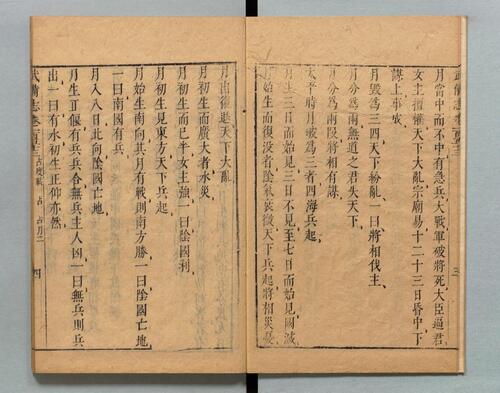 武備志卷一百五十三
三
月當中而不中有急兵大戰軍破將死大臣逼君
女主擅權天下大亂宗廟易十二十三日昏中下
謀上事成
月毀為三四天下紛亂一曰將相伐主
月分為兩無道之君失天下
月分為兩叚將相有謀
太平時月破為三者四海兵起
月生三日而始見三日不見至七日而始見國滅
月始生而復没者陰氣衰微天下兵起將相災憂
月出復退天下大亂
月初生而廣大者水災
月初生而已半女主強一曰陰國利
月初生見東方天下兵起
月始生南向其月有戰則南方勝一曰陰國亡地
一曰南國有兵
月入八日北向陰國亡地
月生正偃有兵兵合無兵主人凶一曰無兵則兵
出一曰有水初生正仰亦然
占度載 占 占月二
四